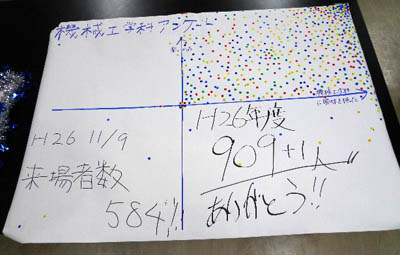 機械工学科アンケート
機械工学科
に興味を持った
H26 11/9
来場者数
584人
H26年度
909+1人
ありがとう!!